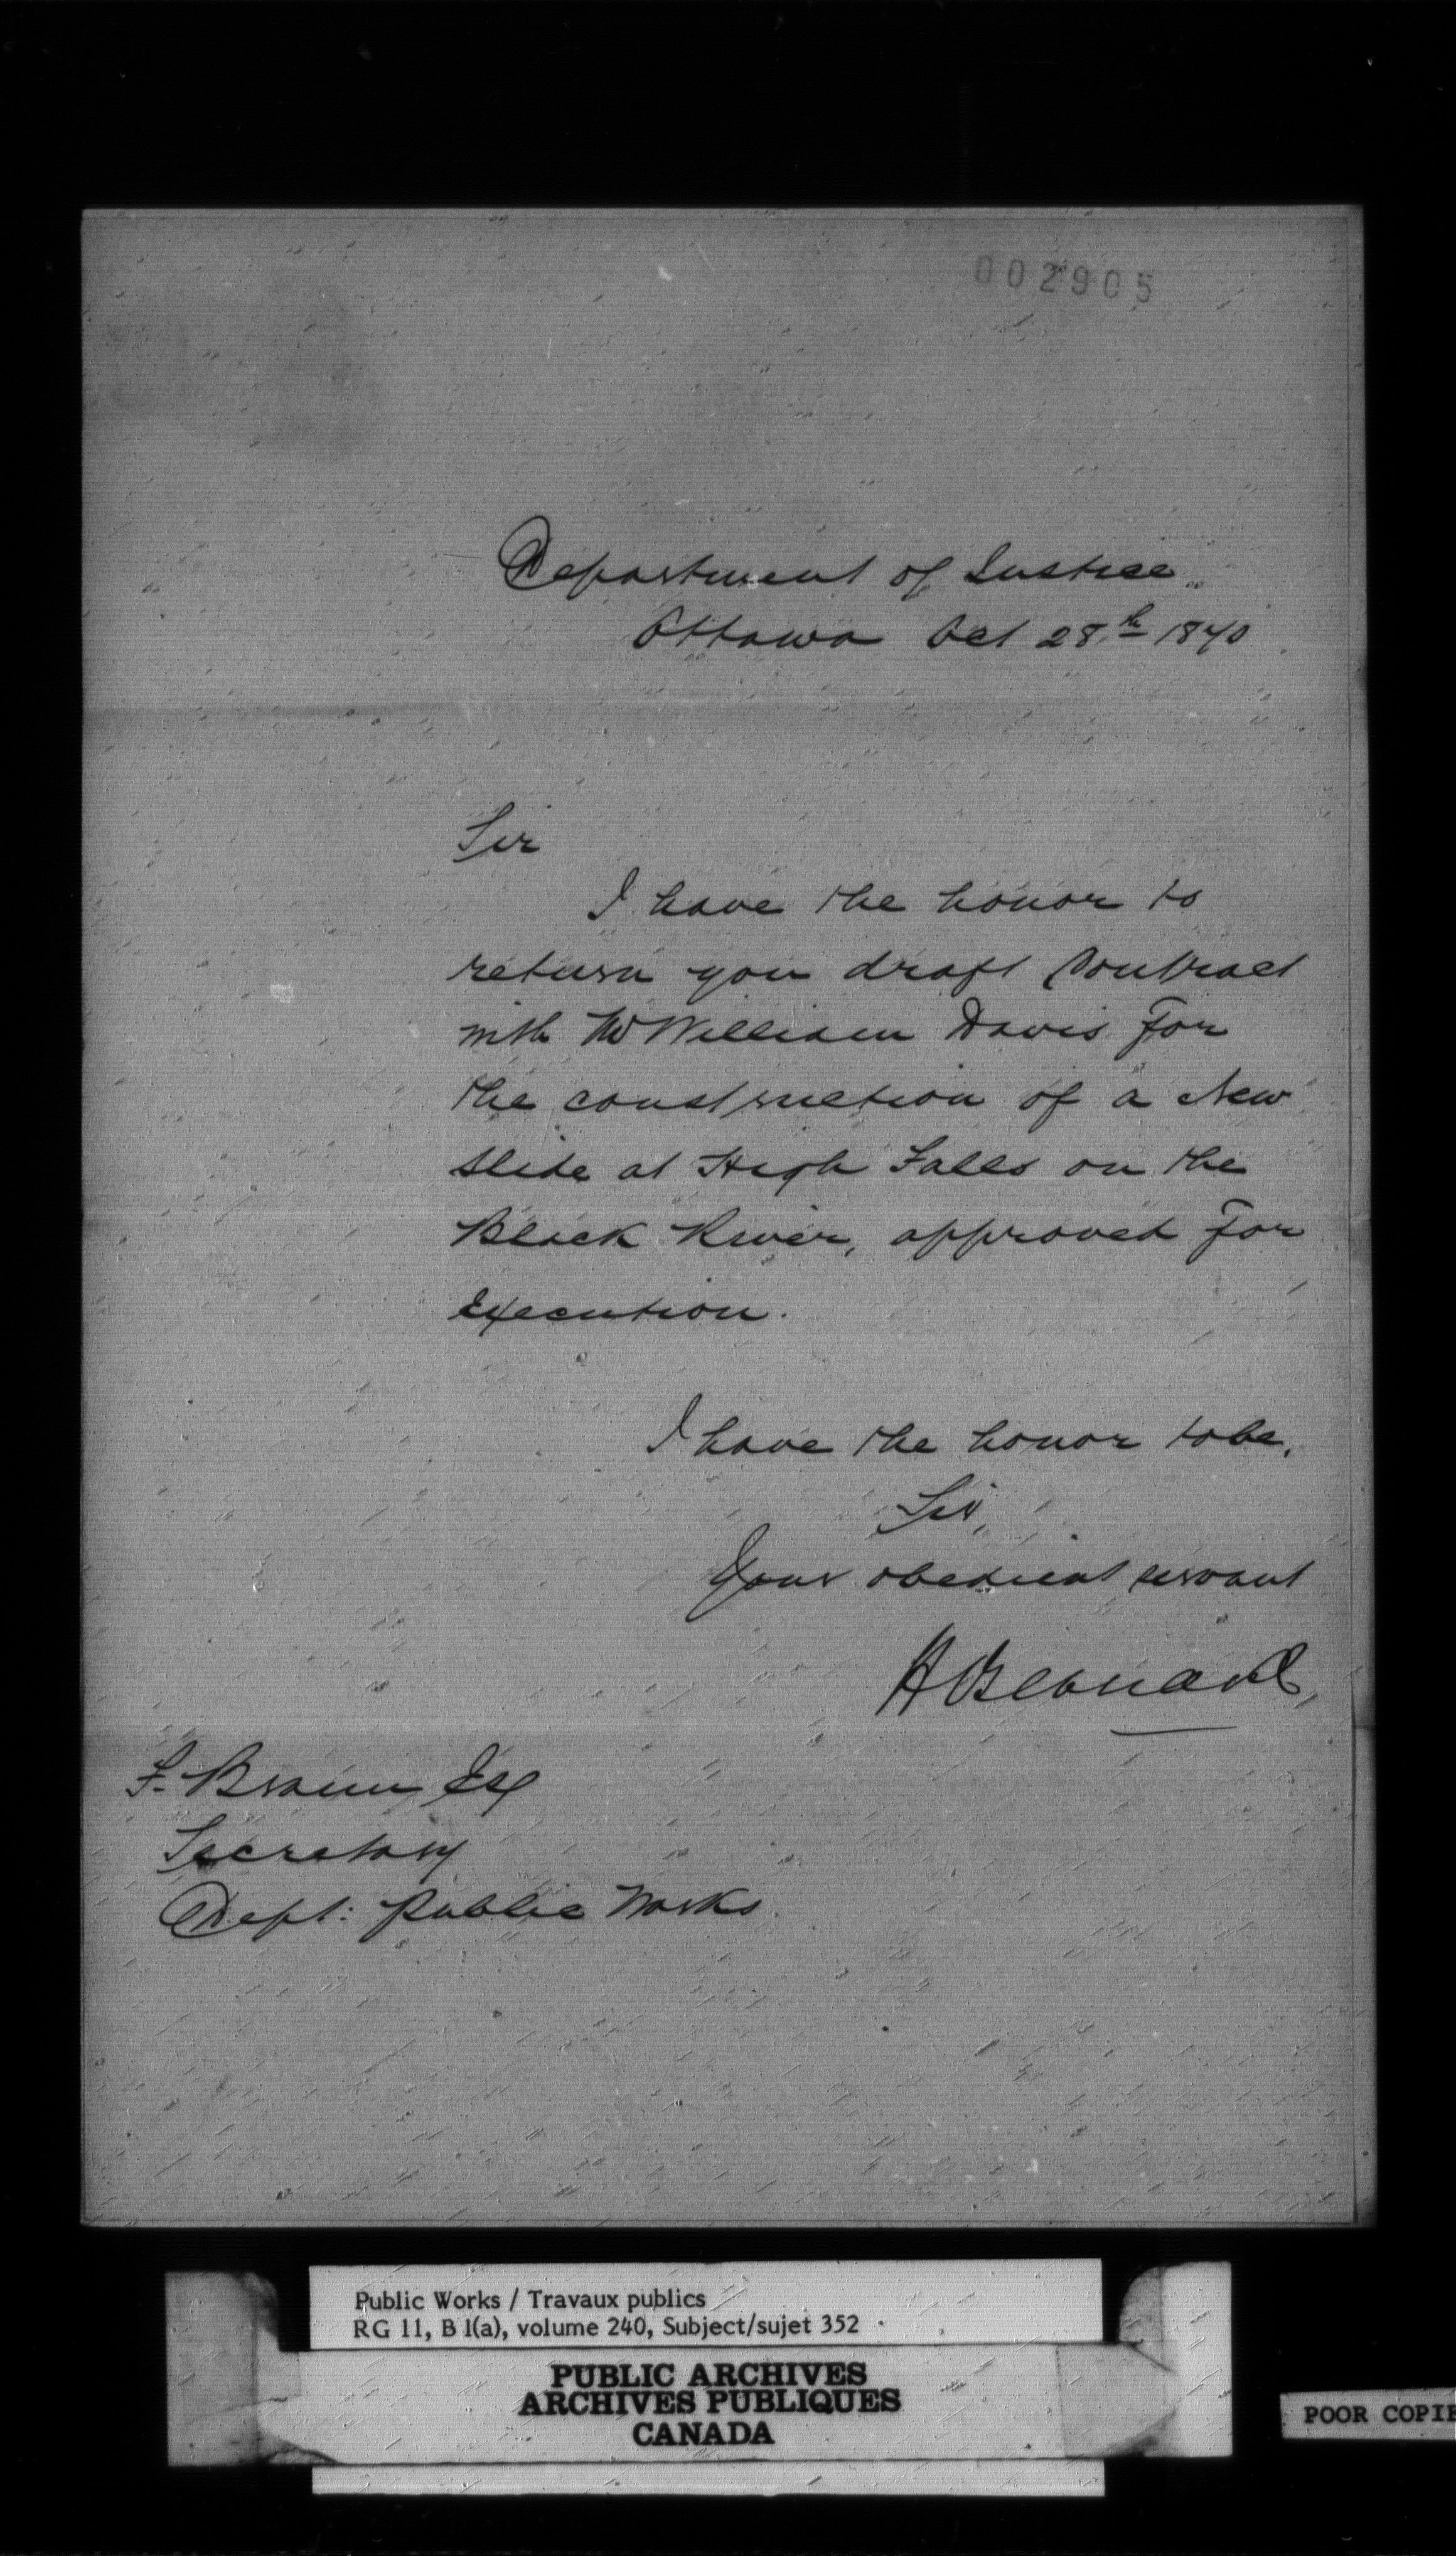 002905
Department of Justice
Ottawa Oct 28th 1870
Sir
I have the honor to
return you draft Contract
with Mr William Davis for
the construction of a New
Slide at High Falls on the
Black River, approved for
Execution.
I have the honor to be,
Sir,
Your obedient servant
H Bernard
F. Braun Esq
Secretary
Dept: Public Works
Public Works / Travaux publics
RG 11, B 1(a), volume 240, Subject/sujet 352
PUBLIC ARCHIVES
ARCHIVES PUBLIQUES
CANADA
POOR COPIE